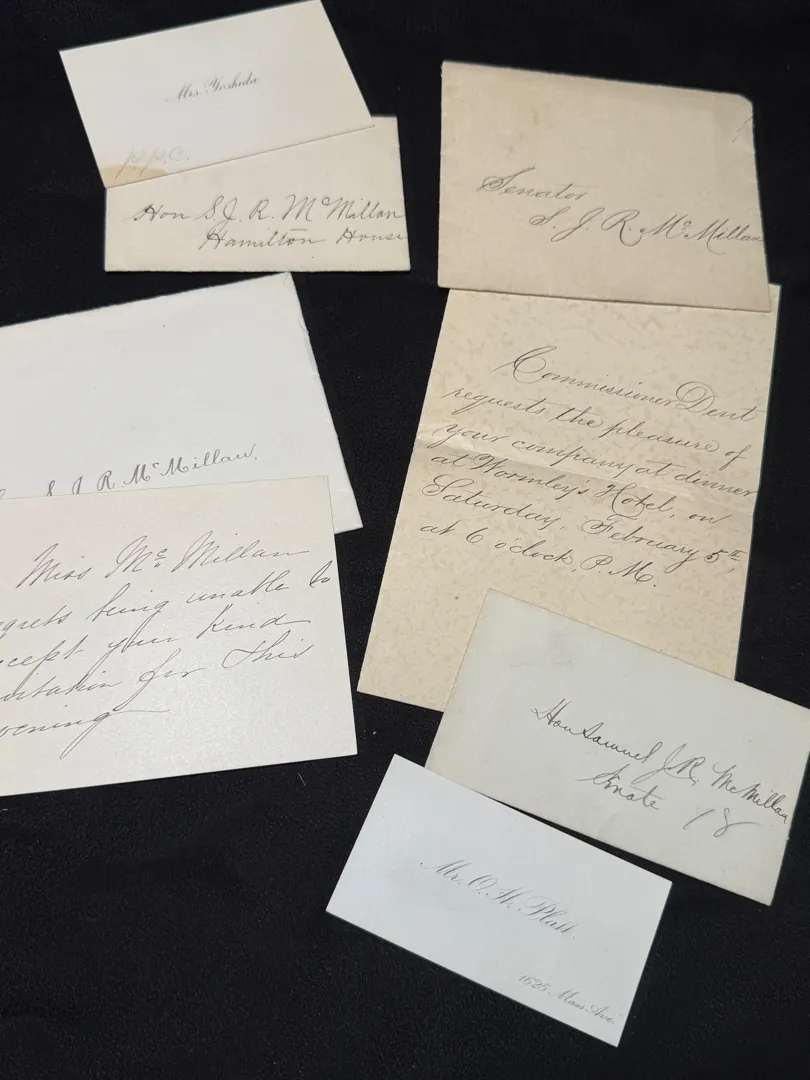 Mrs. Yoshida
P.P.C.
Hon S. J. R. McMillan
Hamilton House
Senator
S. J. R. McMillan
S J R McMillan.
Miss McMillan
egrets being unable to
cept your kind
vitation for this
vening
Commissioner Dent
requests the pleasure of
your company at dinner
at Wormley's Hotel, on
Saturday, February 5th,
at 6 o'clock, P.M.
Hon Samuel J. R. McMillan
Senate 18
Mr. O. H. Platt.
1625 Mass Ave.